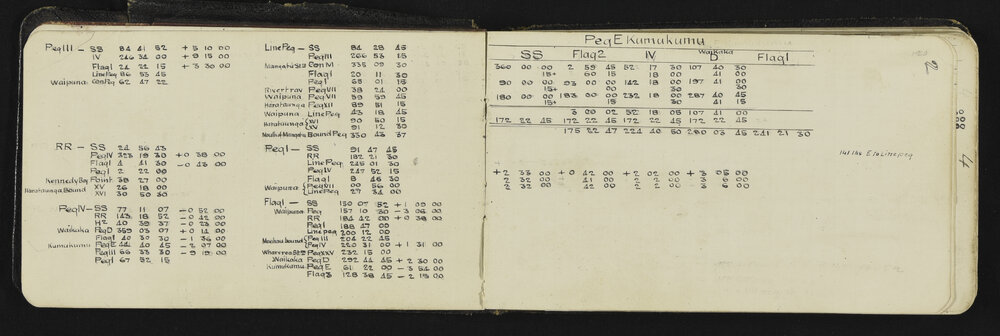 Peg III - SS 84 41 52 + 5 10 00
IV 246 34 00 + 9 15 00
Flag 1 24 22 15 + 3 30 00
Line Peg 86 53 45
Waipuna Con Peg 62 47 22
RR - SS 24 56 43
Peg IV 323 19 30 + 0 38 00
Flag 1 4 41 30 - 0 43 00
Peg 1 2 22 00
Kennedy Bay Point 38 27 00
Harataunga Bound XV 26 18 00
XVI 30 50 30
Peg IV - SS 77 11 07 - 0 52 00
RR 143 18 52 - 0 42 00
H2 40 39 37 - 0 23 00
Waikaka Peg D 359 03 07 + 0 14 00
Flag 1 40 30 30 - 1 36 00
Kumukumu Peg E 44 40 45 - 2 07 00
Peg III 66 33 30 - 9 19 00
Peg 1 67 52 15
Line Peg - SS 84 28 45
Peg III 266 53 15
Con M 335 09 30
Flag 1 20 11 30
Peg 1 65 01 15
Rivertrav Peg VII 38 24 00
Waipuna Peg VII 39 59 45
Harataunga Peg XII 89 51 15
Waipuna Line Peg 43 18 45
Harataunga { XVI 90 50 15
XV 91 12 30
Bound Peg 330 43 37
Peg 1 - SS 91 47 45
RR 182 21 30
Line Peg 245 01 30
Peg IV 247 52 15
Flag 1 8 46 30
Waipuna { Peg VII 00 56 00
Line Peg 27 34 00
Flag 1 - SS 130 07 52 + 1 09 00
Waipuna Peg 157 10 30 - 3 06 00
RR 184 42 00 + 0 38 00
Peg 1 188 47 00
Line Peg 200 12 00
Peg III 204 22 45
Peg IV 220 31 00 + 1 31 00
Peg XXV 232 15 00
Waikaka Peg D 292 44 45 + 2 30 00
Kumukumu Peg E 61 22 00 - 3 54 00
Flag 3 128 38 45 - 2 15 00
Peg E Kumukumu
SS Flag 2 IV Waikaka D Flag 1
360 00 00 2 59 45 52 17 30 107 40 30
15+ 60 15 18 00 41 00
90 00 00 93 00 00 142 18 00 197 41 00
30 30
180 00 00 183 00 00 232 18 00 287 40 45
15+ 15 30 41 15
3 00 02 52 18 05 107 41 00
172 22 45 172 22 45 172 22 45 172 22 45
175 22 47 224 40 50 280 03 45 241 21 30
E to Line peg
+ 2 33 00 + 0 42 00 + 2 02 00 + 3 05 00
2 32 00 41 00 2 2 00 3 6 00
2 32 00 42 00 2 2 00 3 6 00
4